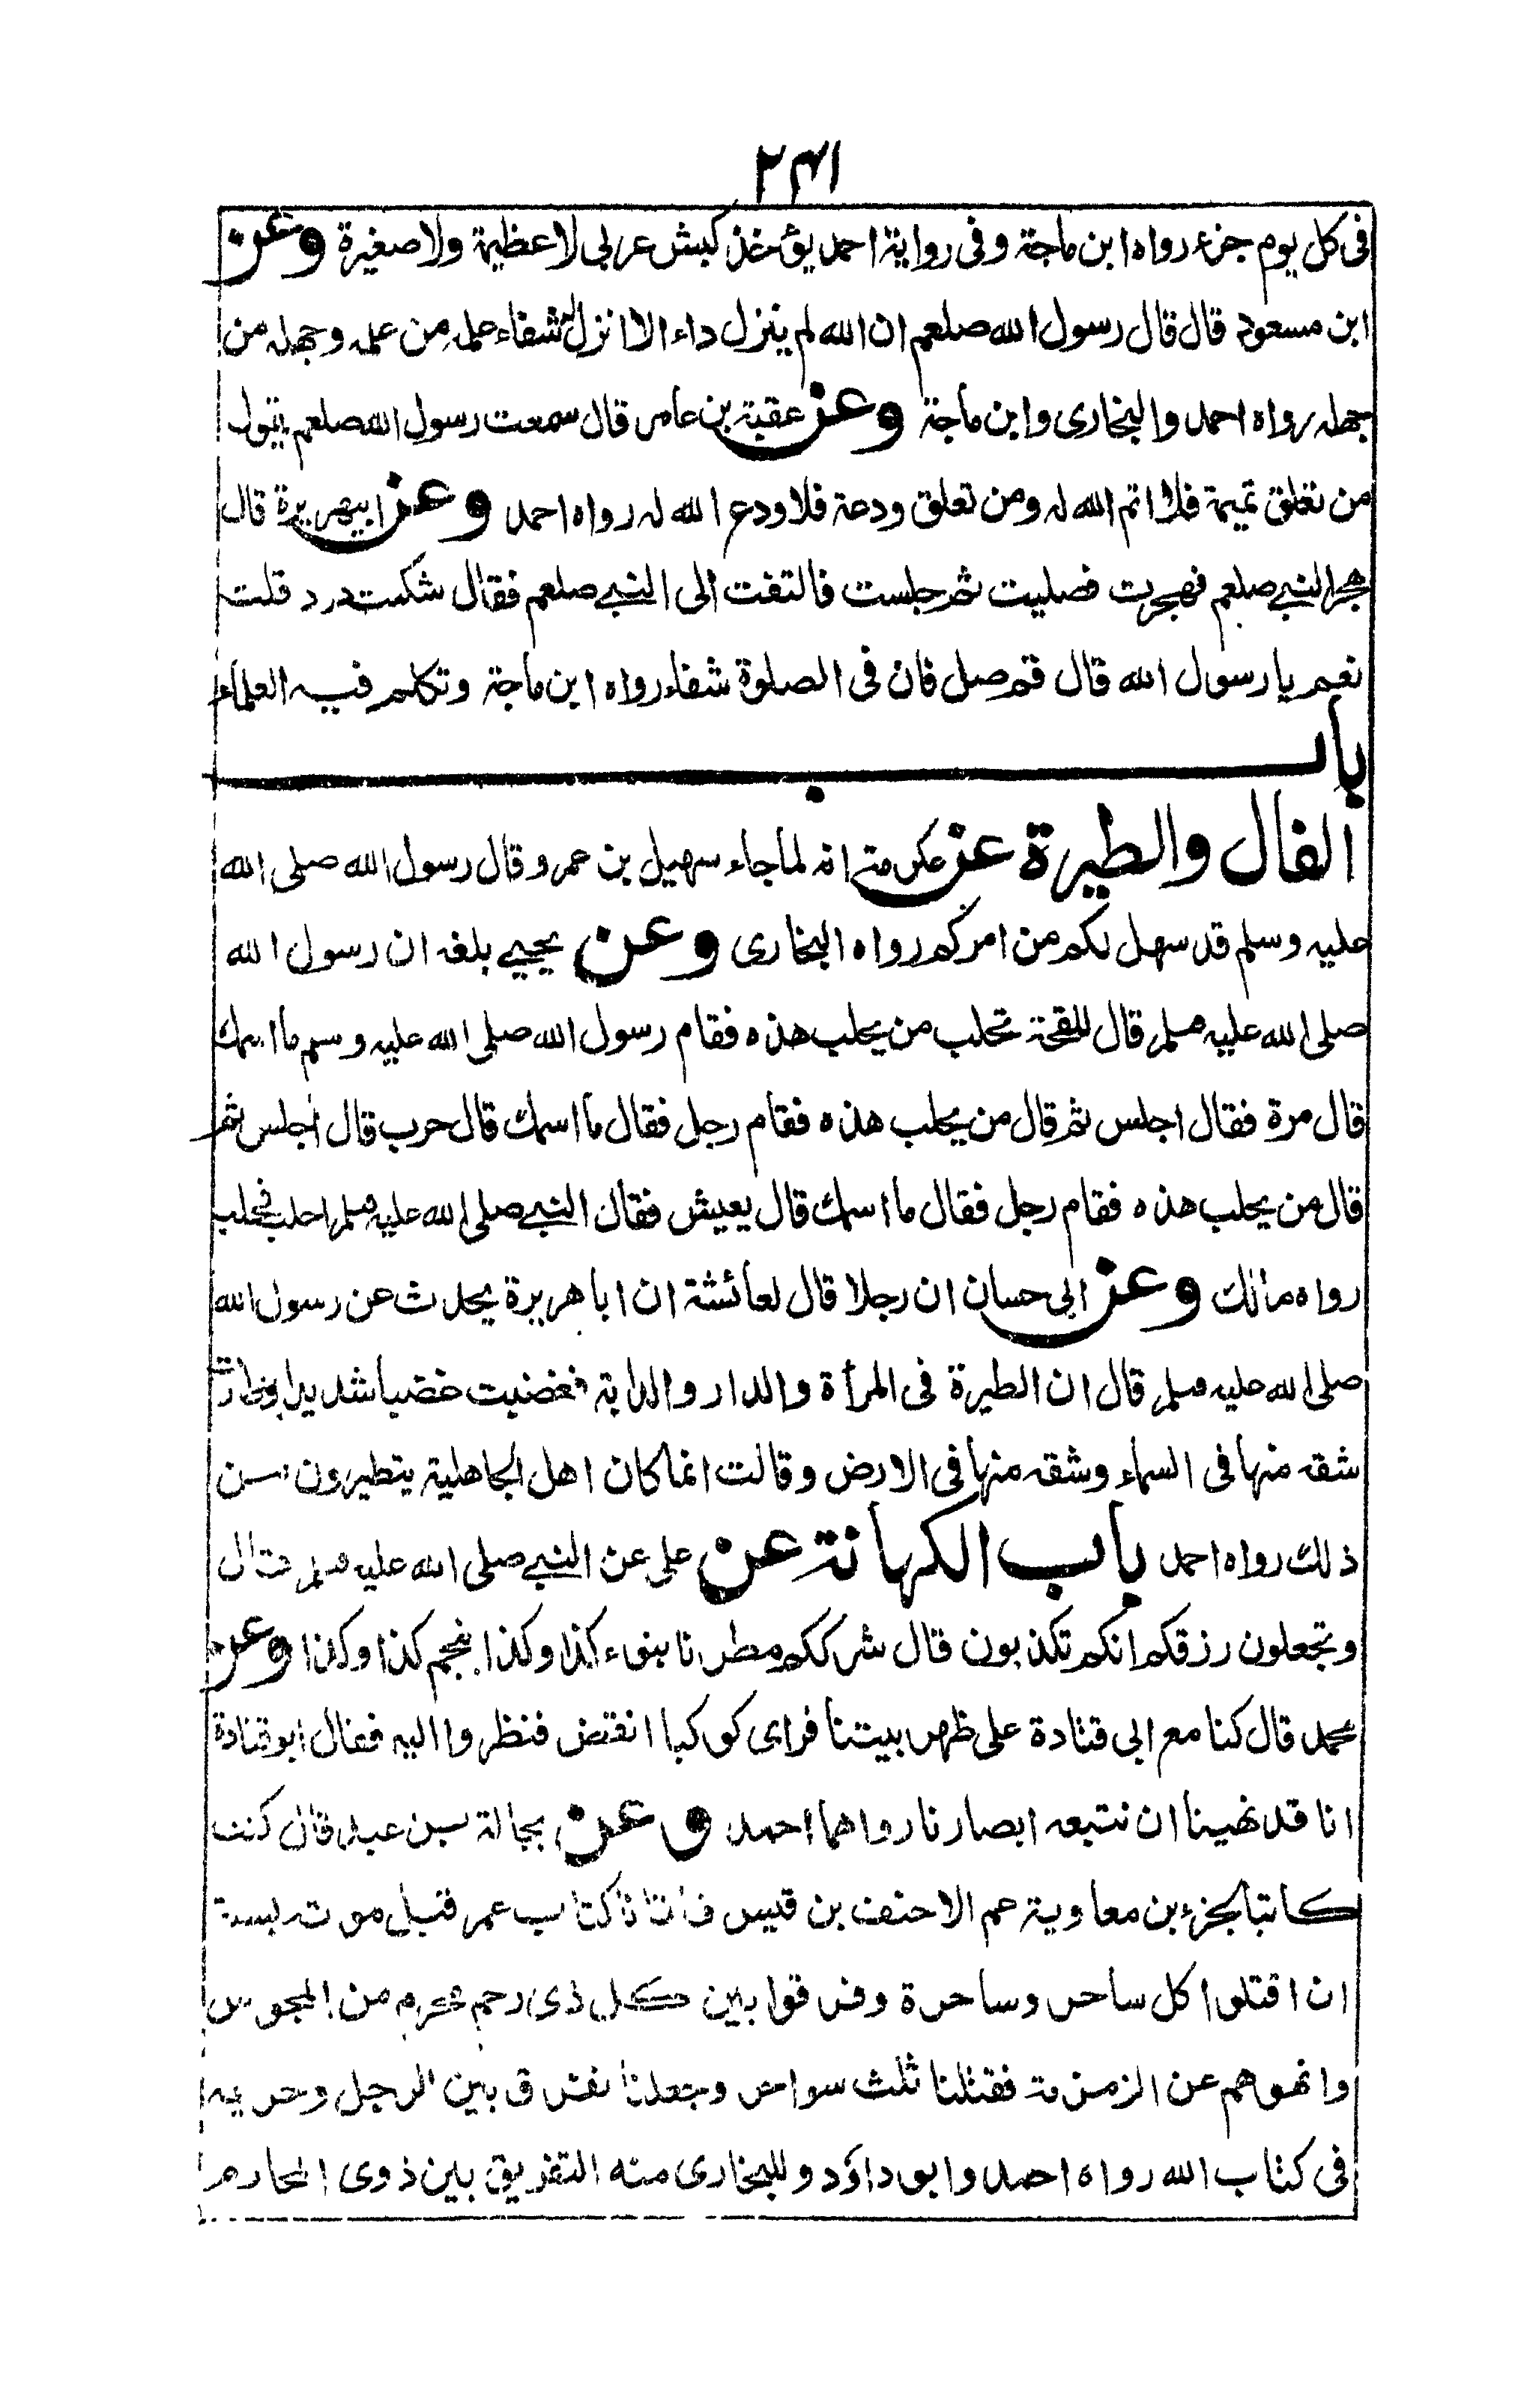 ٢٤١
فى كل يوم جزء رواه ابن ماجة وفى رواية احمد يؤخذ كبش عربى لا عظيمة ولا صغيرة وعن
ابن مسعود قال قال رسول الله صلعم ان الله لم ينزل داء الا انزل له شفاء علمه من علمه وجهله من
جهله رواه احمد والبخارى وابن ماجة وعن عقبة بن عامر قال سمعت رسول الله صلعم يقول
من تعلق تميمة فلا اتم الله له ومن تعلق ودعة فلا ودع الله له رواه احمد وعن ابيهريرة قال
هجر النبى صلعم فهجرت فصليت ثم جلست فالتفت الى النبى صلعم فقال شكمت درد قلت
نعم يا رسول الله قال قم صل فان فى الصلوة شفاء رواه ابن ماجة وتكلم فيه العلماء
باب
الفال والطيرة عن عكرمة انه لما جاء سهيل بن عمرو قال رسول الله صلى الله
عليه وسلم قد سهل لكم من امركم رواه البخارى وعن يحيى بلغه ان رسول الله
صلى الله عليه وسلم قال للقحة تحلب من يحلب هذه فقام رسول الله صلى الله عليه وسلم ما اسمك
قال مرة فقال اجلس ثم قال من يحلب هذه فقام رجل فقال ما اسمك قال حرب قال اجلس ثم
قال من يحلب هذه فقام رجل فقال ما اسمك قال يعيش فقال النبى صلى الله عليه وسلم احلب فحلب
رواه مالك وعن ابى حسان ان رجلا قال لعائشة ان ابا هريرة يحدث عن رسول الله
صلى الله عليه وسلم قال ان الطيرة فى المرأة والدار والدابة فغضبت غضبا شديدا وطارت
شقه منها فى السماء وشقه منها فى الارض وقالت انما كان اهل الجاهلية يتطيرون من
ذلك رواه احمد باب الكهانة عن على عن النبى صلى الله عليه وسلم قال
وتجعلون رزقكم انكم تكذبون قال شرككم مطرنا بنوء كذا وكذا بنجم كذا وكذا وعن
محمد قال كنا مع ابى قتادة على ظهر بيتنا فراى كوكبا انقض فنظروا اليه فقال ابو قتادة
انا قد نهينا ان نتبعه ابصارنا رواهما احمد وعن بجالة بن عبد قال كنت
كاتبا لجزء بن معاوية عم الاحنف بن قيس فاتانا كتاب عمر قبل موته بسنة
ان اقتلوا كل ساحر وساحرة وفرقوا بين كل ذى رحم محرم من المجوس
وانهوهم عن الزمزمة فقتلنا ثلث سواحر وجعلنا نفرق بين الرجل وحريمه
فى كتاب الله رواه احمد وابو داؤد وللبخارى منه التفريق بين ذوى المحارم